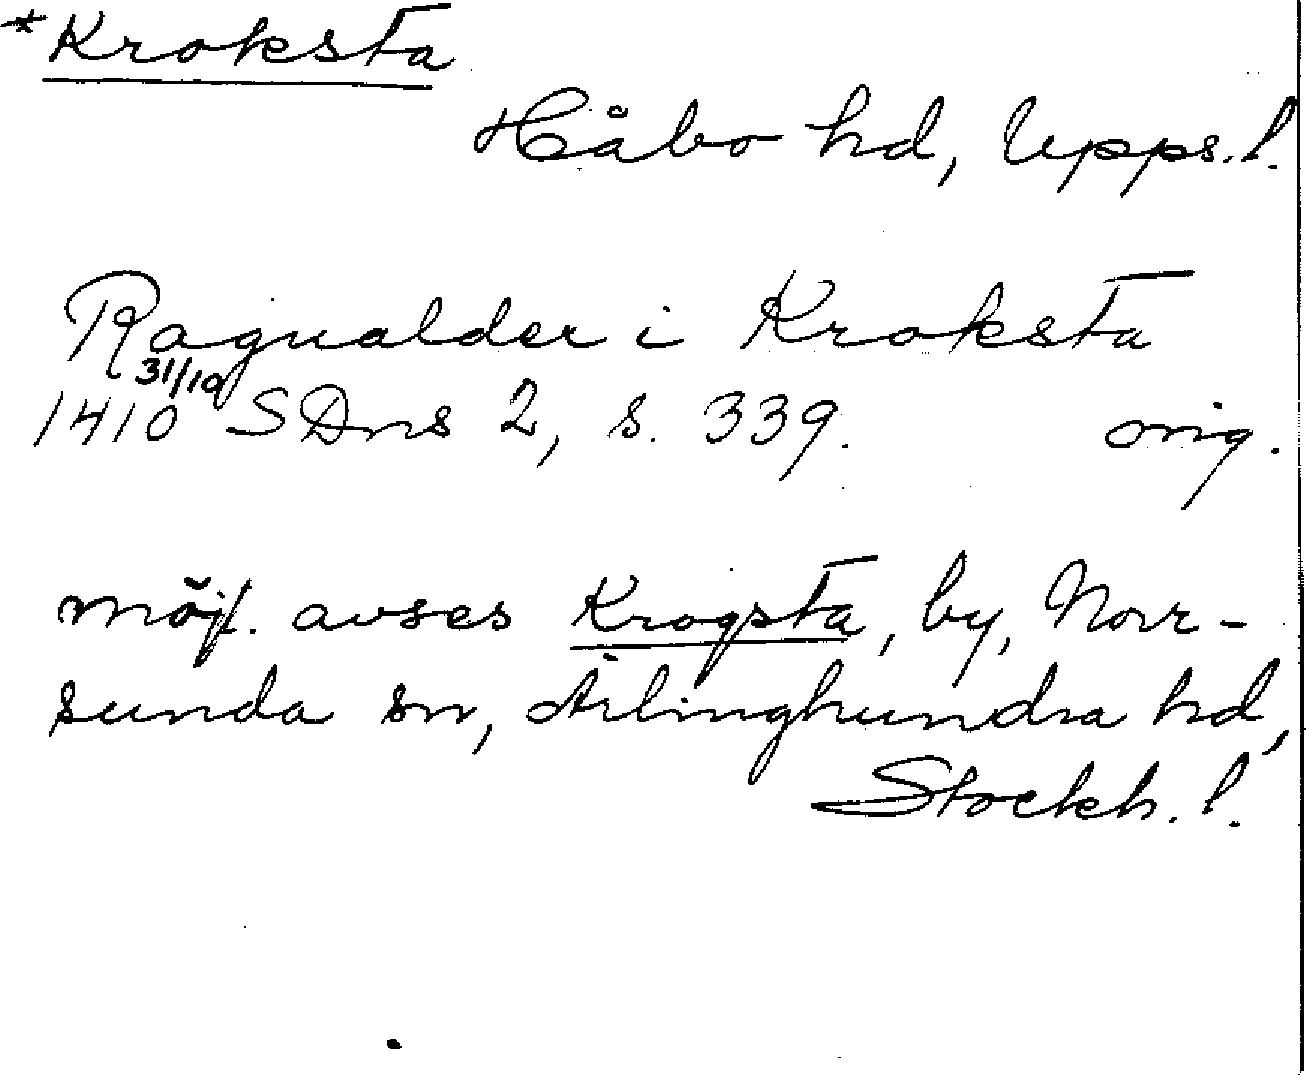 *Kroksta
Håbo hd, Upps. l.
Ragualder i Kroksta
31/10
1410 SDns 2, s. 339. orig.
möjl. avses Krogsta, by, Norr-
sunda sn, Ärlinghundra hd,
Stockh. l.